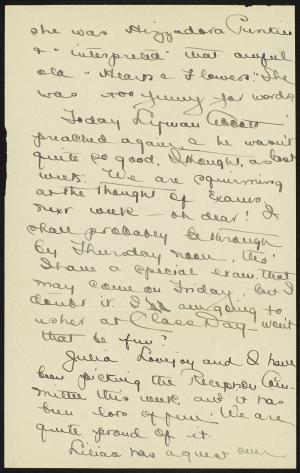 she was Hizzadora Pinkin
& "interpreted" that awful
old "Hearts & Flowers." She
was too funny for words.
Today Lyman Abbott
preached again & he wasn't
quite so good, I thought, as last
week. We are squirming
at the thought of exams
next week – oh dear! I
shall probably be through
by Thursday noon, tho'
I have a special exam that
may come on Friday, but I
doubt it. I am going to
usher at Class Day – won't
that be fun?
Julia Lovejoy and I have
been picking the Reception Com-
mittee this week and it has
been lots of fun. We are
quite proud of it.
Lilias has a guest over